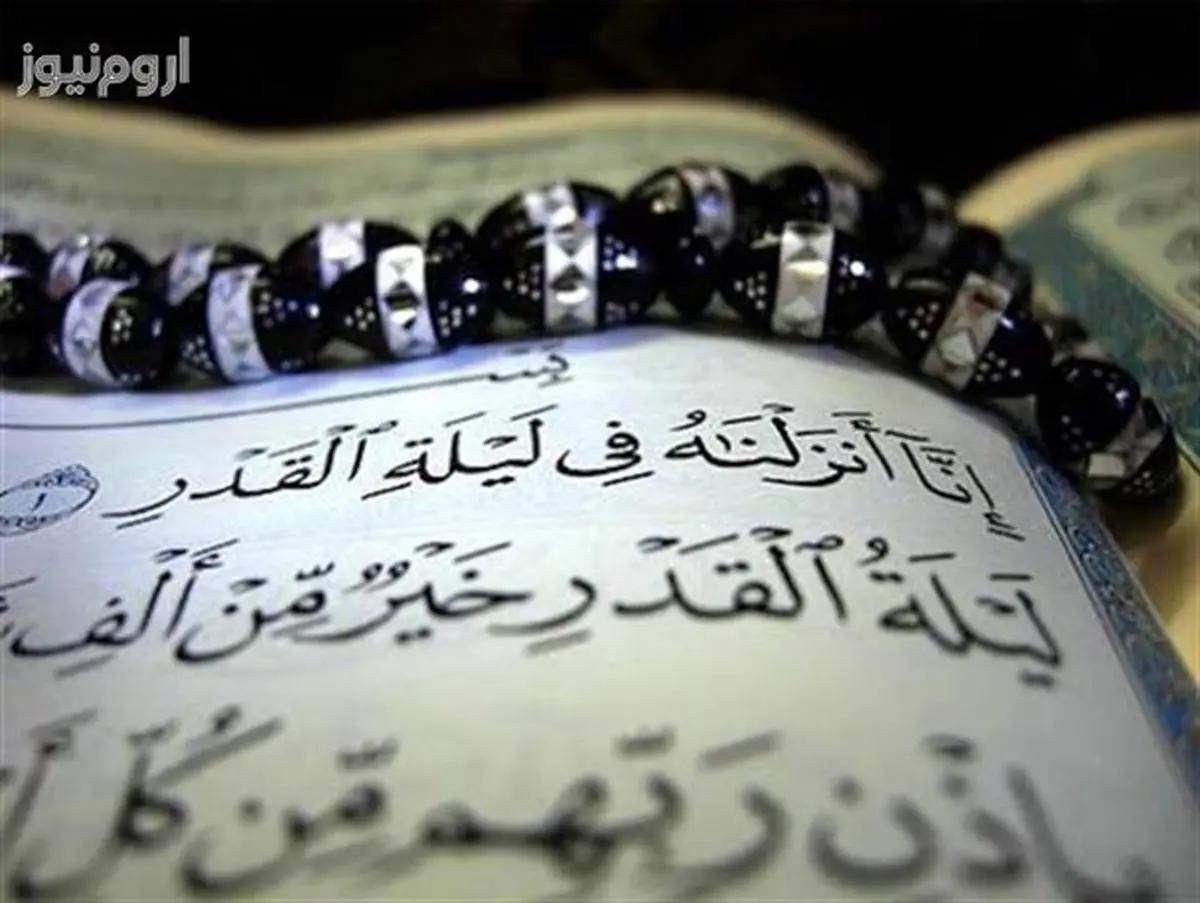 اروم‌نیوز
بِسْـ
إِنَّآ أَنزَلْنَـٰهُ فِى لَيْلَةِ ٱلْقَدْرِ ١
لَيْلَةُ ٱلْقَدْرِ خَيْرٌ مِّنْ أَلْفِ
بِإِذْنِ رَبِّهِم مِّن كُلِّ